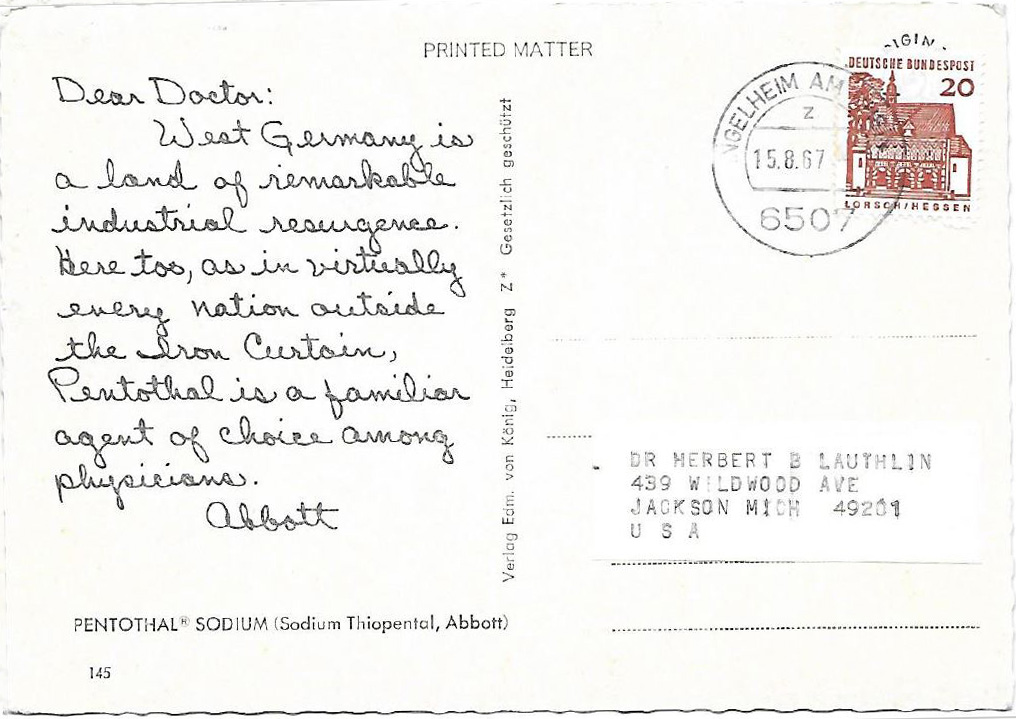 PRINTED MATTER
Dear Doctor:
West Germany is
a land of remarkable
industrial resurgence.
Here too, as in virtually
every nation outside
the Iron Curtain,
Pentothal is a familiar
agent of choice among
physicians.
Abbott
PENTOTHAL® SODIUM (Sodium Thiopental, Abbott)
145
Verlag Edm. von König, Heidelberg Z * Gesetzlich geschützt
NGELHEIM AM
z
15.8.67
6507
DEUTSCHE BUNDESPOST
20
LORSCH/HESSEN
DR HERBERT B LAUTHLIN
439 WILDWOOD AVE
JACKSON MICH 49201
U S A